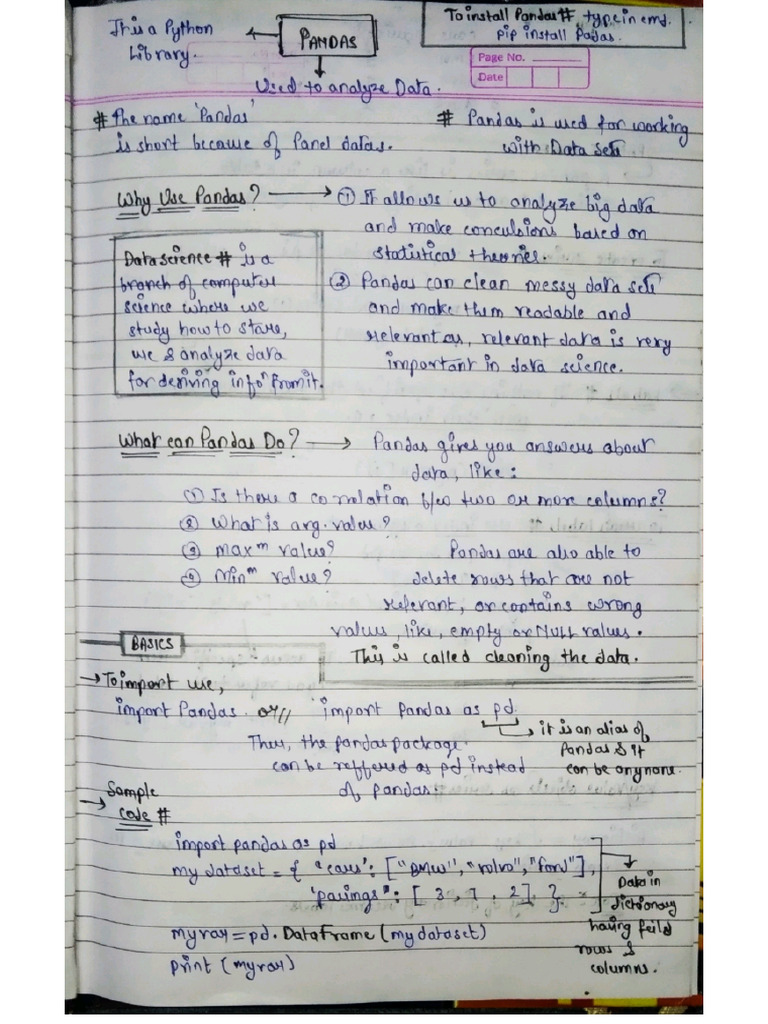 This a Python
Library.
PANDAS
To install Pandas #, type in cmd.
pip install Padas.
Page No.
Date
Used to analyze Data.
# The name 'Pandas'
is short because of Panel datas.
# Pandas is used for working
with Data Sets
Why Use Pandas? → ① It allows us to analyze big data
and make conculsions based on
statistical theories.
Data science # is a
branch of computer
science where we
study how to store,
use & analyze data
for deriving infoⁿ from it.
② Pandas can clean messy data sets
and make them readable and
relevant as, relevant data is very
important in data science.
What can Pandas Do? → Pandas gives you answers about
data, like:
① Is there a correlation b/w two or more columns?
② What is avg. value?
③ maxᵐ value?
④ Minᵐ value?
Pandas are also able to
delete rows that are not
relevant, or contains wrong
values, like, empty or NULL values.
This is called cleaning the data.
BASICS
→ To import use,
import Pandas or // import Pandas as pd
→ it is an alias of
Pandas & it
can be anynone.
Then, the pandas package
can be reffered as pd instead
of pandas.
→ Sample
code #
import pandas as pd
mydataset = { 'cars': ["BMW", "volvo", "ford"],
'passings": [ 3, 7, 2] }
myvar = pd.DataFrame(mydataset)
print (myvar)
→ Data in
dictionary
having feild
rows &
columns.